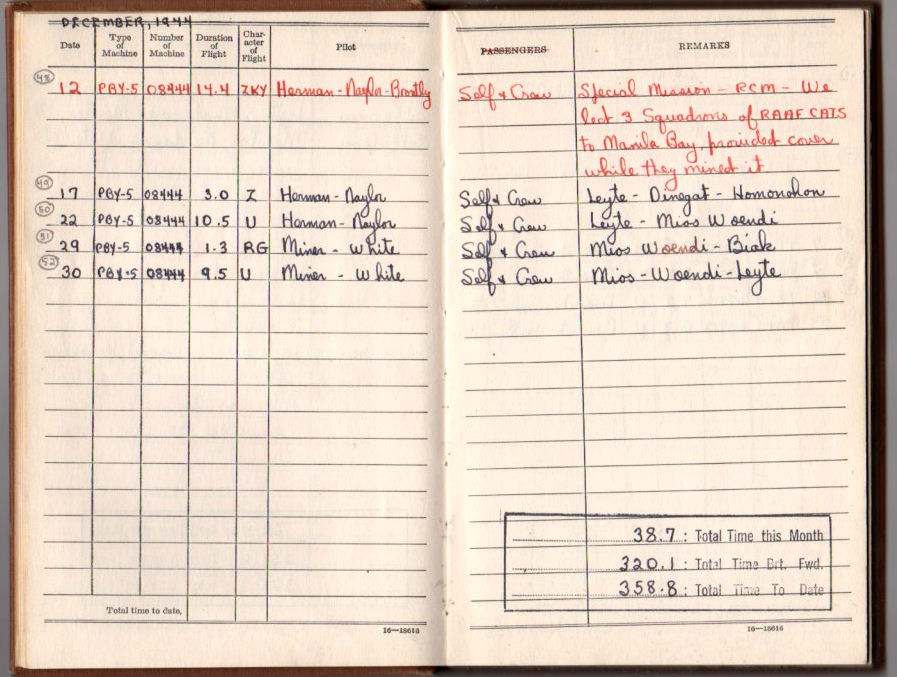 DECEMBER, 1944
Date Type of Machine Number of Machine Duration of Flight Character of Flight Pilot PASSENGERS REMARKS
48
12 PBY-5 08444 14.4 ZKY Herman - Naylor - Brantly Self & Crew Special Mission - RCM - We
led 3 Squadrons of RAAF CATS
to Manila Bay, provided cover
while they mined it
49
17 PBY-5 08444 3.0 Z Herman - Naylor Self & Crew Leyte - Dinegat - Homonohon
50
22 PBY-5 08444 10.5 U Herman - Naylor Self & Crew Leyte - Mios Woendi
51
29 PBY-5 08444 1.3 RG Miner - White Self & Crew Mios Woendi - Biak
52
30 PBY-5 08444 9.5 U Miner - White Self & Crew Mios - Woendi - Leyte
38.7 : Total Time this Month
320.1 : Total Time Brt. Fwd.
358.8 : Total Time To Date
Total time to date,
16—18616
16—18616